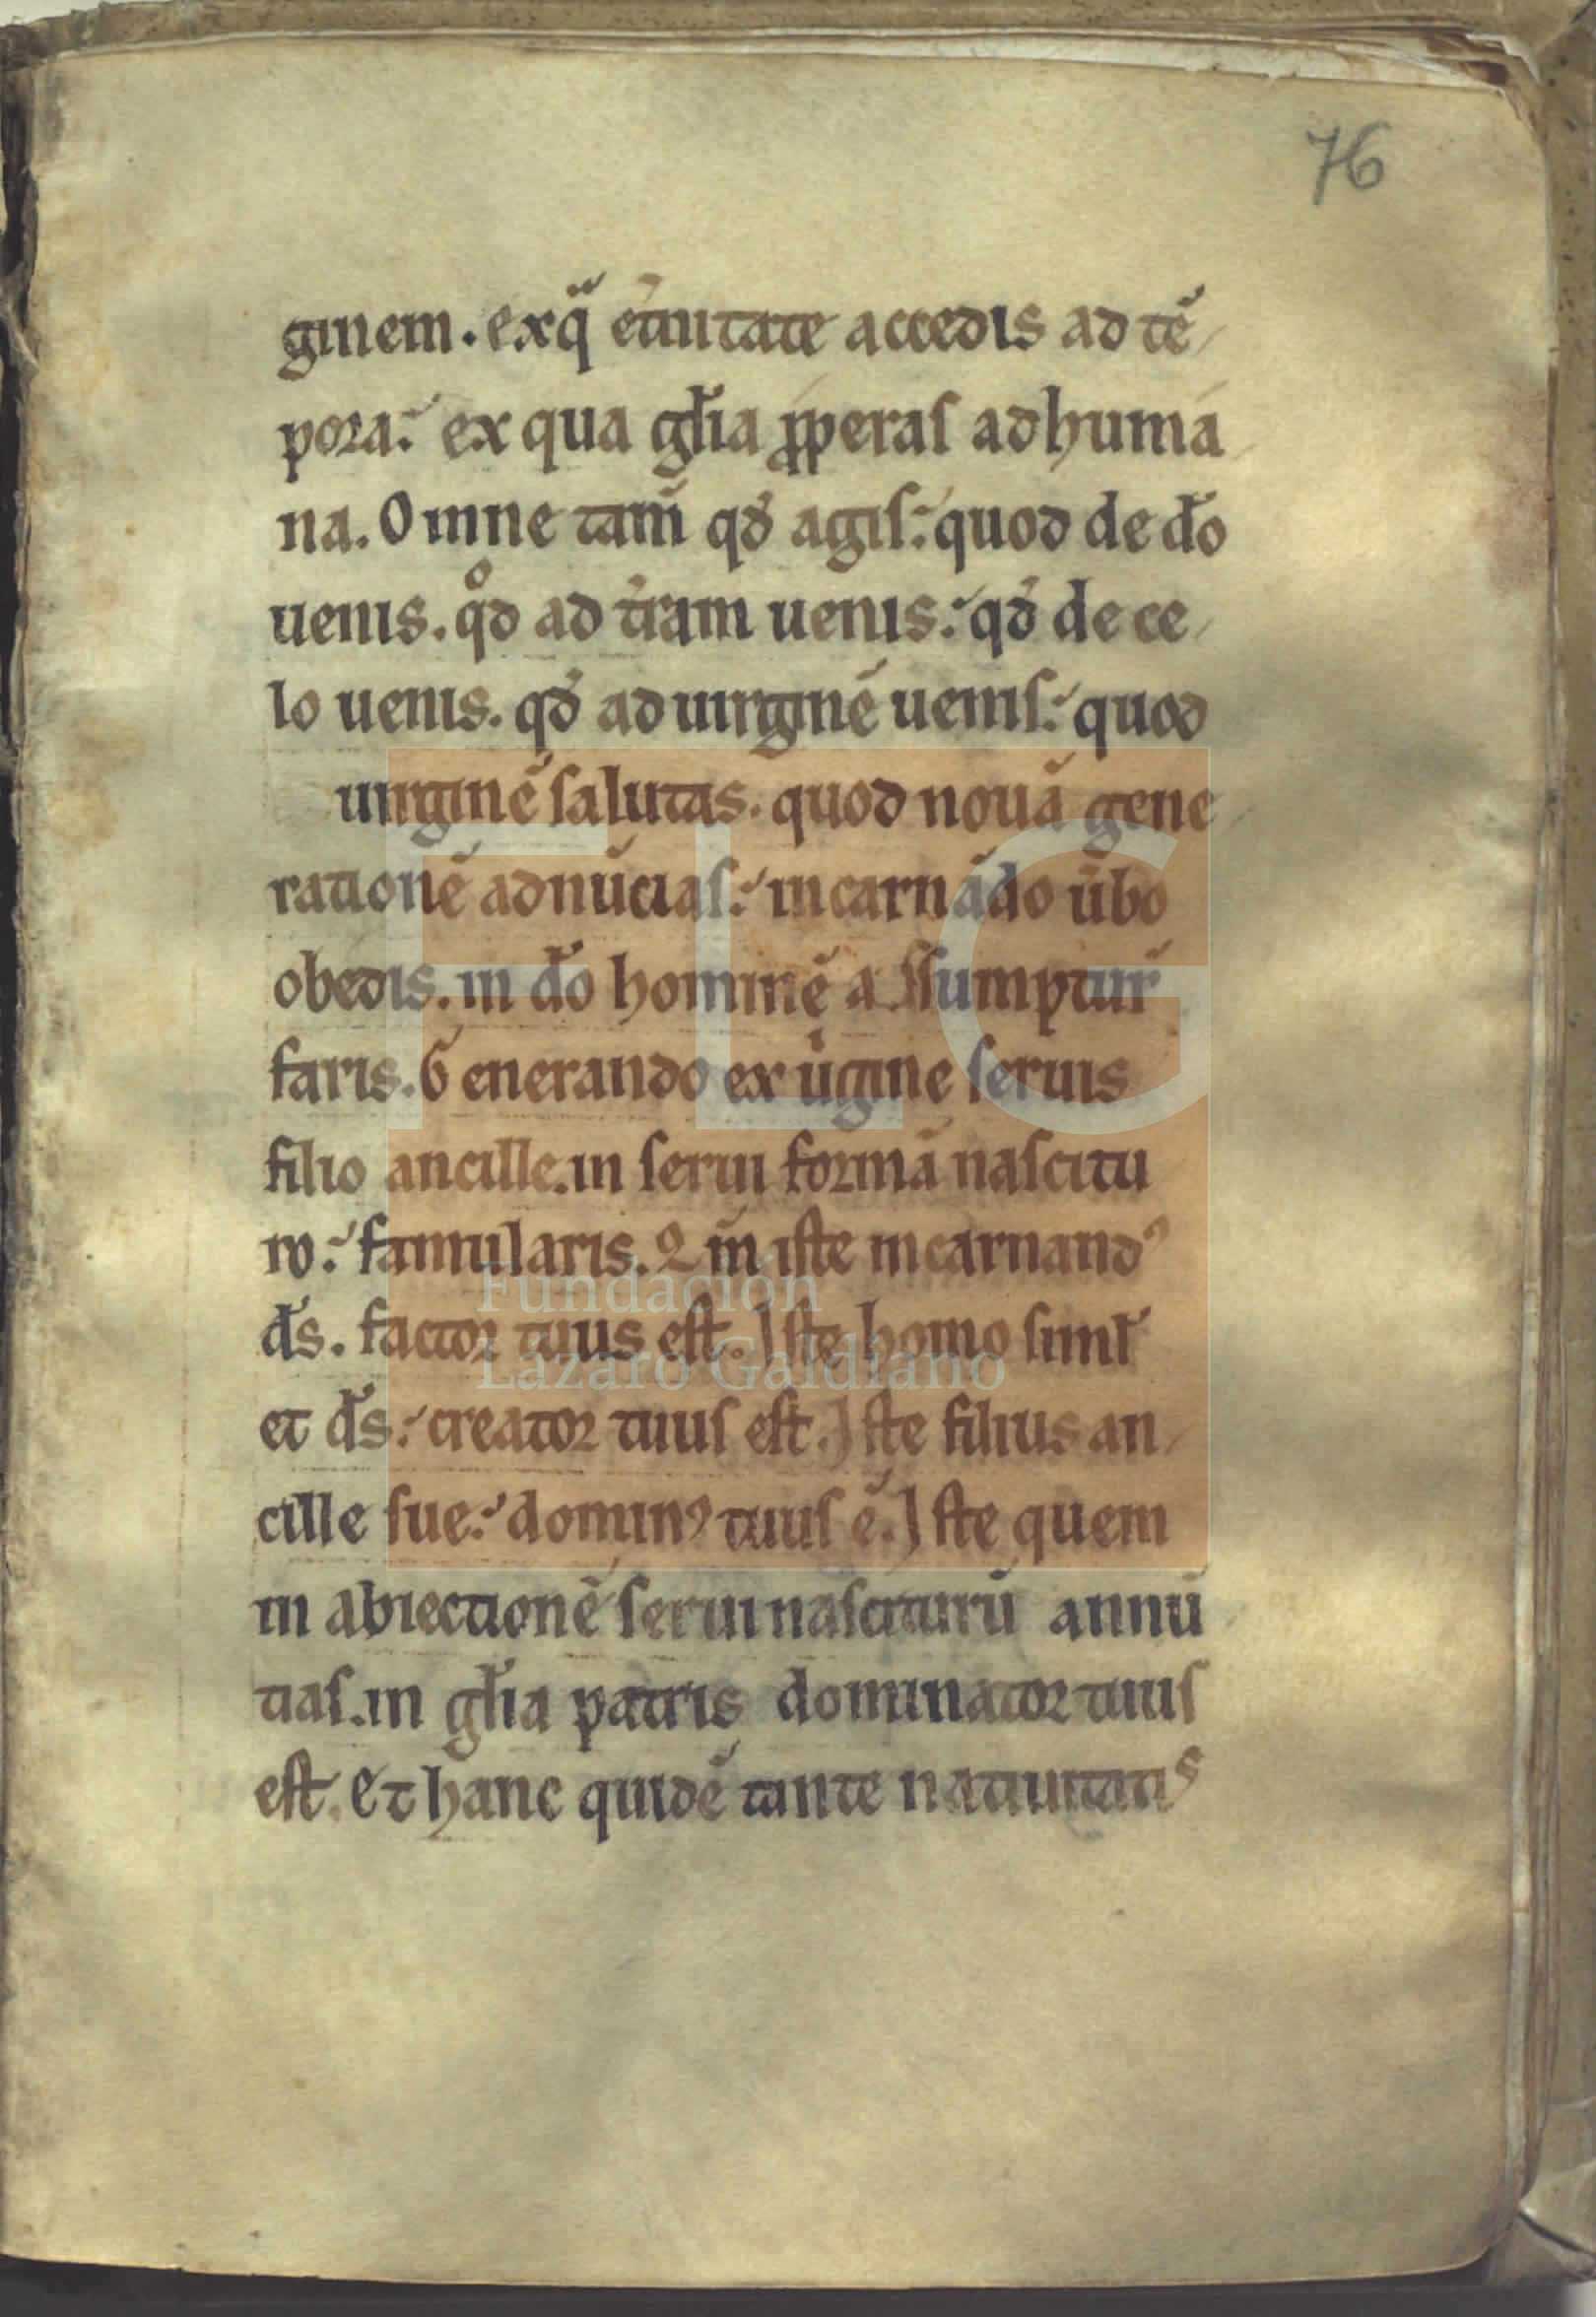 76
ginem. exq̈ et̾nitate accedis ad tē
pora: ex qua gl̄ia ꝓperas ad huma
na. Omne tam̄ qd̄ agis: quod de d̄o
uenis. qͦd ad t̾ram uenis: qd̄ de ce
lo uenis. qd̄ ad uirginē uenis: quod
uirginē salutas. quod nouā gene
rationē adnūcias: incarnādo u̾bo
obedis. in d̄o hominē assumptur̄
faris. Generando ex u̾gine seruis
filio ancille. in serui formā nascitu
ro: famularis. ꝛ in iste incarnandꝰ
d̄s. factor tuus est. Iste homo siml̄
et d̄s: creator tuus est. Iste filius an
cille sue: dominꝰ tuus ē. Iste quem
in abiectionē serui nasciturū annū
tias. in gl̄ia patris dominator tuus
est. Et hanc quidē tante natiuitatis
FLG
Fundación
Lázaro Galdiano